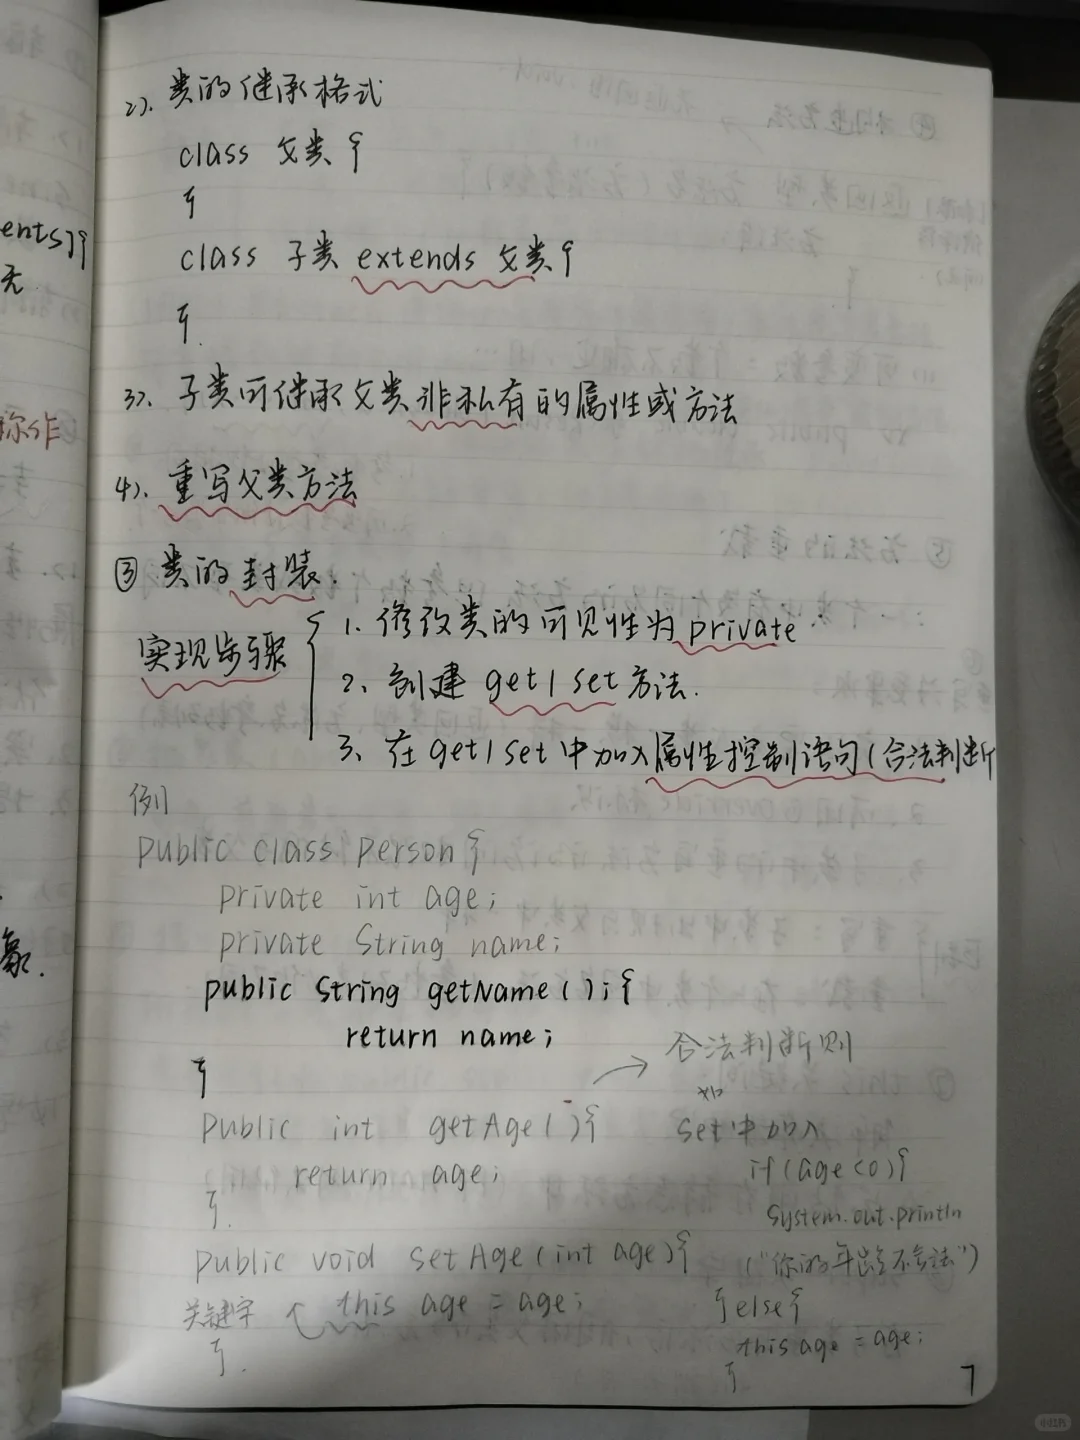 2). 类的继承格式
class 父类{
}
class 子类 extends 父类{
}
3). 子类可继承父类非私有的属性或方法
4). 重写父类方法
③ 类的封装.
实现步骤
1. 修改类的可见性为private
2. 创建 get/set方法.
3. 在get/set中加入属性控制语句(合法判断
例
public class person{
private int age;
private String name;
public String getName();{
return name;
}
public int getAge(){
return age;
}.
public void setAge(int age){
关键字 this age = age;
}.
合法判断则
如
set中加入
if(age<0){
System.out.println
("你的年龄不合法")
}else{
this age = age;
}
7
ents]{
无
称作
象.
小红书